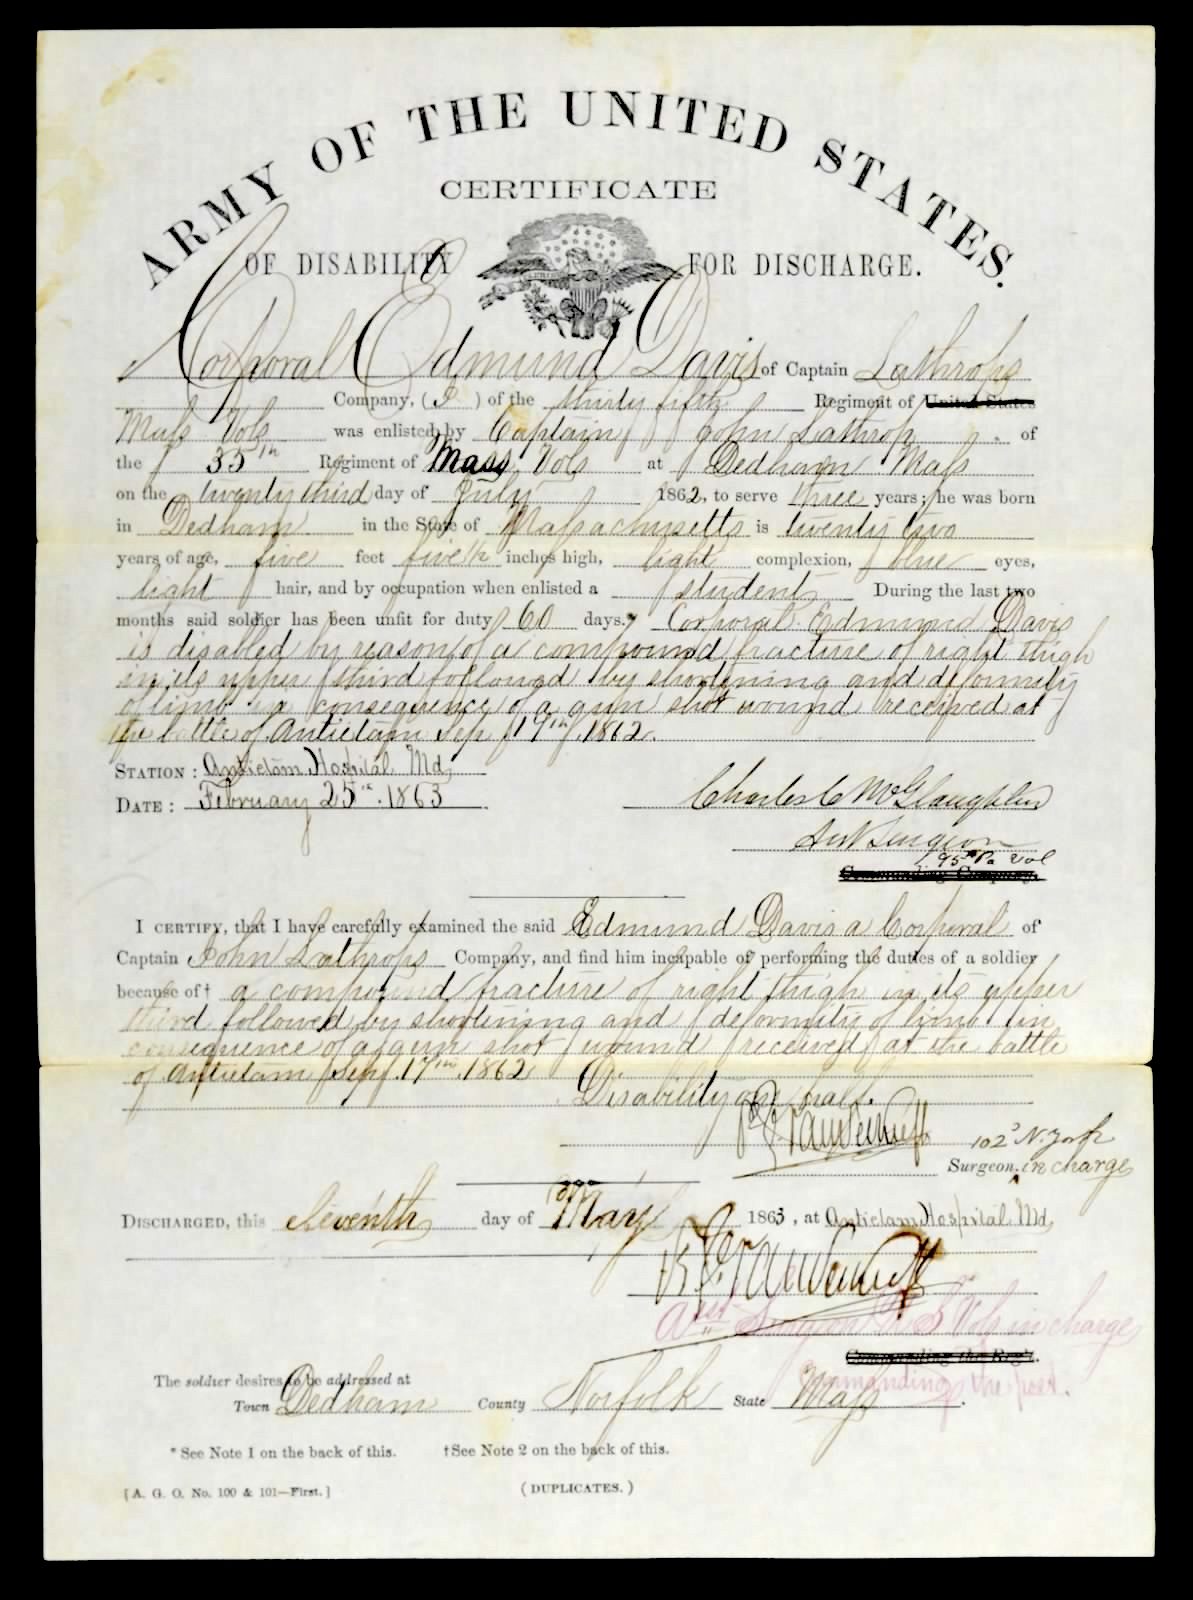 ARMY OF THE UNITED STATES.
CERTIFICATE
OF DISABILITY FOR DISCHARGE.
Corporal Edmund Davis of Captain Lathrops
Company, ( I ) of the thirty fifth Regiment of United States
Mass Vols was enlisted by Captain John Lathrop of
the 35th Regiment of Mass Vols at Dedham Mass
on the twenty third day of July 1862, to serve three years; he was born
in Dedham in the State of Massachusetts is twenty two
years of age, five feet five ½ inches high, light complexion, blue eyes,
light hair, and by occupation when enlisted a student During the last two
months said soldier has been unfit for duty 60 days.* Corporal Edmund Davis
is disabled by reason of a compound fracture of right thigh
in its upper third followed by shortening and deformity
of limb in consequence of a gun shot wound received at
the battle of Antietam Sep 17th 1862.
STATION: Antietam Hospital Md
DATE: February 25th 1863
Charles C McGlaughlin
Asst Surgeon
Pa Vol
Commanding Company.
I CERTIFY, that I have carefully examined the said Edmund Davis a Corporal of
Captain John Lathrops Company, and find him incapable of performing the duties of a soldier
because of† a compound fracture of right thigh in its upper
third followed by shortening and deformity of limb in
consequence of a gun shot wound received at the battle
of Antietam Sep 17th 1862
Disability one half.
102d N. York
Surgeon. in charge
DISCHARGED, this eleventh day of May 1863, at Antietam Hospital Md
Asst Surgeon U S Vols in charge
Commanding the Reg't.
Commanding the post.
The soldier desires to be addressed at
Town Dedham County Norfolk State Mass
* See Note 1 on the back of this. † See Note 2 on the back of this.
[A. G. O. No. 100 & 101—First.] (DUPLICATES.)